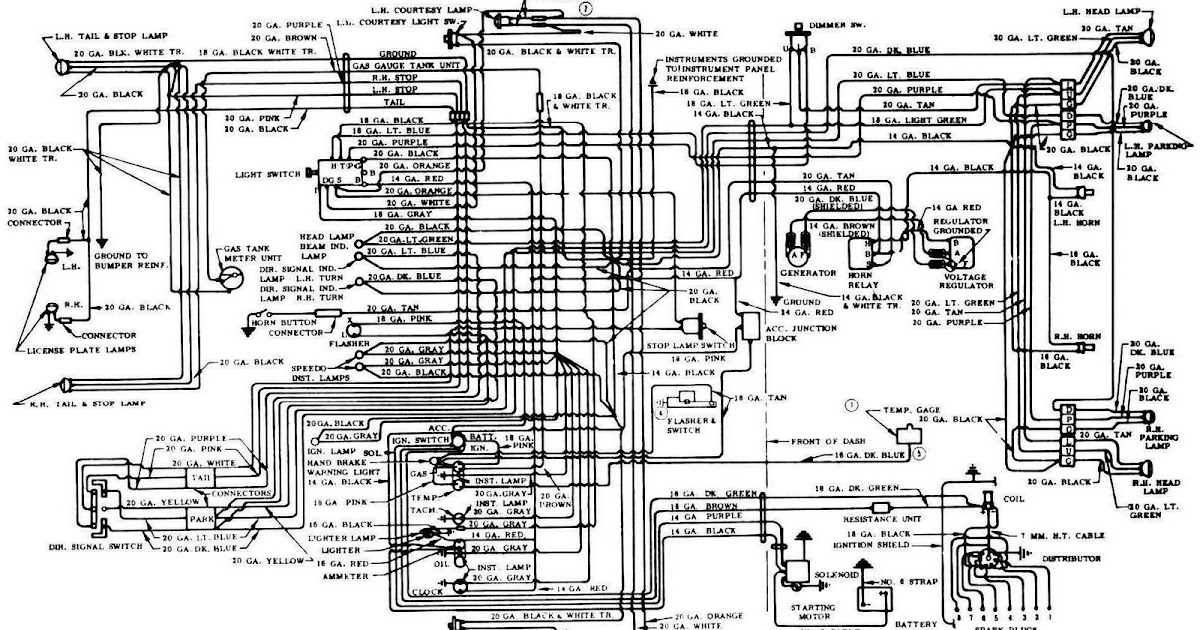 L.H. COURTESY LAMP
L.H. COURTESY LIGHT SW.
20 GA. PURPLE
20 GA. BROWN
L.H. TAIL & STOP LAMP
20 GA. BLK. WHITE TR.
18 GA. BLACK WHITE TR.
GROUND
GAS GAUGE TANK UNIT
R.H. STOP
L.H. STOP
TAIL
20 GA. BLACK
20 GA. PINK
20 GA. BLACK
20 GA. BLACK & WHITE TR.
20 GA. WHITE
18 GA. BLACK
& WHITE TR.
DIMMER SW.
B
INSTRUMENTS GROUNDED
TO INSTRUMENT PANEL
REINFORCEMENT
18 GA. BLACK
18 GA. LT. GREEN
14 GA. BLACK
20 GA. DK. BLUE
20 GA. LT. BLUE
20 GA. PURPLE
20 GA. TAN
18 GA. LIGHT GREEN
14 GA. BLACK
L.H. HEAD LAMP
20 GA. TAN
20 GA. LT. GREEN
20 GA.
BLACK
20 GA. DK.
BLUE
20 GA.
PURPLE
L.H. PARKING
LAMP
20 GA.
BLACK
20 GA. BLACK
14 GA.
BLACK
14 GA. BLACK
14 GA.
BLACK
L.H. HORN
16 GA.
BLACK
18 GA. BLACK
18 GA. LT. BLUE
20 GA. PURPLE
20 GA. BLACK
20 GA. ORANGE
14 GA. RED
20 GA. ORANGE
20 GA. WHITE
18 GA. GRAY
20 GA. BLACK
20 GA. LT. GREEN
20 GA. LT. BLUE
20 GA. DK. BLUE
LIGHT SWITCH
20 GA. BLACK
WHITE TR.
20 GA. BLACK
CONNECTOR
L.H.
GROUND TO
BUMPER REINF.
GAS TANK
METER UNIT
R.H.
20 GA. BLACK
CONNECTOR
LICENSE PLATE LAMPS
HEAD LAMP
BEAM IND.
LAMP
DIR. SIGNAL IND.
LAMP L.H. TURN
DIR. SIGNAL IND.
LAMP R.H. TURN
HORN BUTTON
CONNECTOR
20 GA. TAN
18 GA. PINK
FLASHER
20 GA. GRAY
20 GA. GRAY
20 GA. BLACK
SPEEDO
INST. LAMPS
20 GA. BLACK
R.H. TAIL & STOP LAMP
20 GA. TAN
14 GA. RED
20 GA. DK. BLUE
(SHIELDED)
14 GA. BROWN
(SHIELDED)
GENERATOR
A F
HORN
RELAY
14 GA RED
REGULATOR
GROUNDED
VOLTAGE
REGULATOR
14 GA. RED
20 GA.
BLACK
GROUND
14 GA. RED
14 GA. BLACK
& WHITE TR.
20 GA. LT. GREEN
20 GA. TAN
20 GA. PURPLE
ACC. JUNCTION
BLOCK
STOP LAMP SWITCH
18 GA. PINK
14 GA. BLACK
FLASHER &
SWITCH
18 GA. TAN
FRONT OF DASH
TEMP. GAGE
16 GA. DK. BLUE
R.H. HORN
16 GA.
BLACK
20 GA.
DK. BLUE
20 GA.
PURPLE
20 GA.
BLACK
R.H.
PARKING
LAMP
20 GA. BLACK
20 GA. TAN
20 GA. BLACK
R.H. HEAD
LAMP
20 GA. LT.
GREEN
20 GA. PURPLE
20 GA. PINK
20 GA. WHITE
TAIL
CONNECTORS
20 GA. YELLOW
PARK
20 GA. LT. BLUE
20 GA. DK. BLUE
DIR. SIGNAL SWITCH
20 GA. YELLOW
20 GA. BLACK
20 GA. GRAY
ACC.
IGN. SWITCH
BATT.
SOL.
IGN.
18 GA.
PINK
IGN. LAMP
HAND BRAKE
WARNING LIGHT
14 GA. BLACK
GAS
INST. LAMP
20 GA. GRAY
16 GA. PINK
TEMP.
INST LAMP
20 GA. GRAY
TACH.
20 GA.
BROWN
16 GA. BLACK
20 GA. GRAY
LIGHTER LAMP
14 GA. RED
LIGHTER
20 GA. GRAY
16 GA. RED
OIL
AMMETER
INST. LAMP
20 GA. GRAY
CLOCK
14 GA. RED
20 GA. BLACK & WHITE TR.
20 GA. ORANGE
20 GA. WHITE
18 GA. DK. GREEN
18 GA. BROWN
14 GA. PURPLE
14 GA. BLACK
18 GA. DK. GREEN
RESISTANCE UNIT
COIL
18 GA. BLACK
IGNITION SHIELD
7 MM. H.T. CABLE
DISTRIBUTOR
SOLENOID
NO. 6 STRAP
STARTING
MOTOR
BATTERY
8 7 6 5 4 3 2 1
SPARK PLUGS